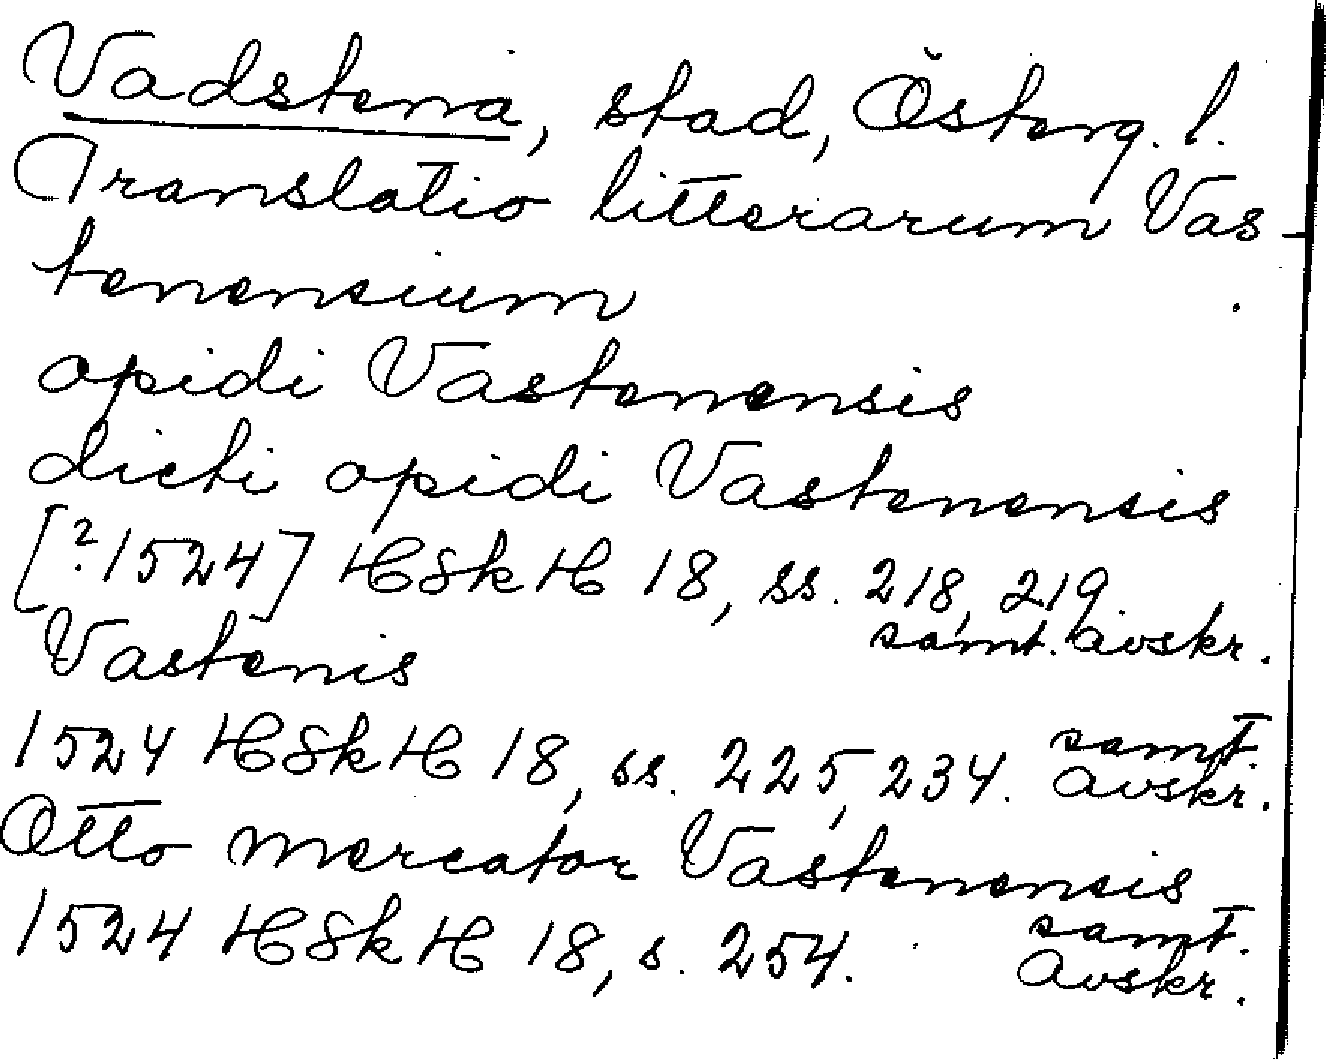 Vadstena, stad, Österg. l.
Translatio litterarum Vas-
tenensium
opidi Vastenensis
dicti opidi Vastenensis
[?1524] HSkH 18, ss. 218, 219.
samt. avskr.
Vastenis
1524 HSkH 18, ss. 225, 234. samt.
avskr.
Otto mercator Vastenensis
1524 HSkH 18, s. 254. samt.
avskr.